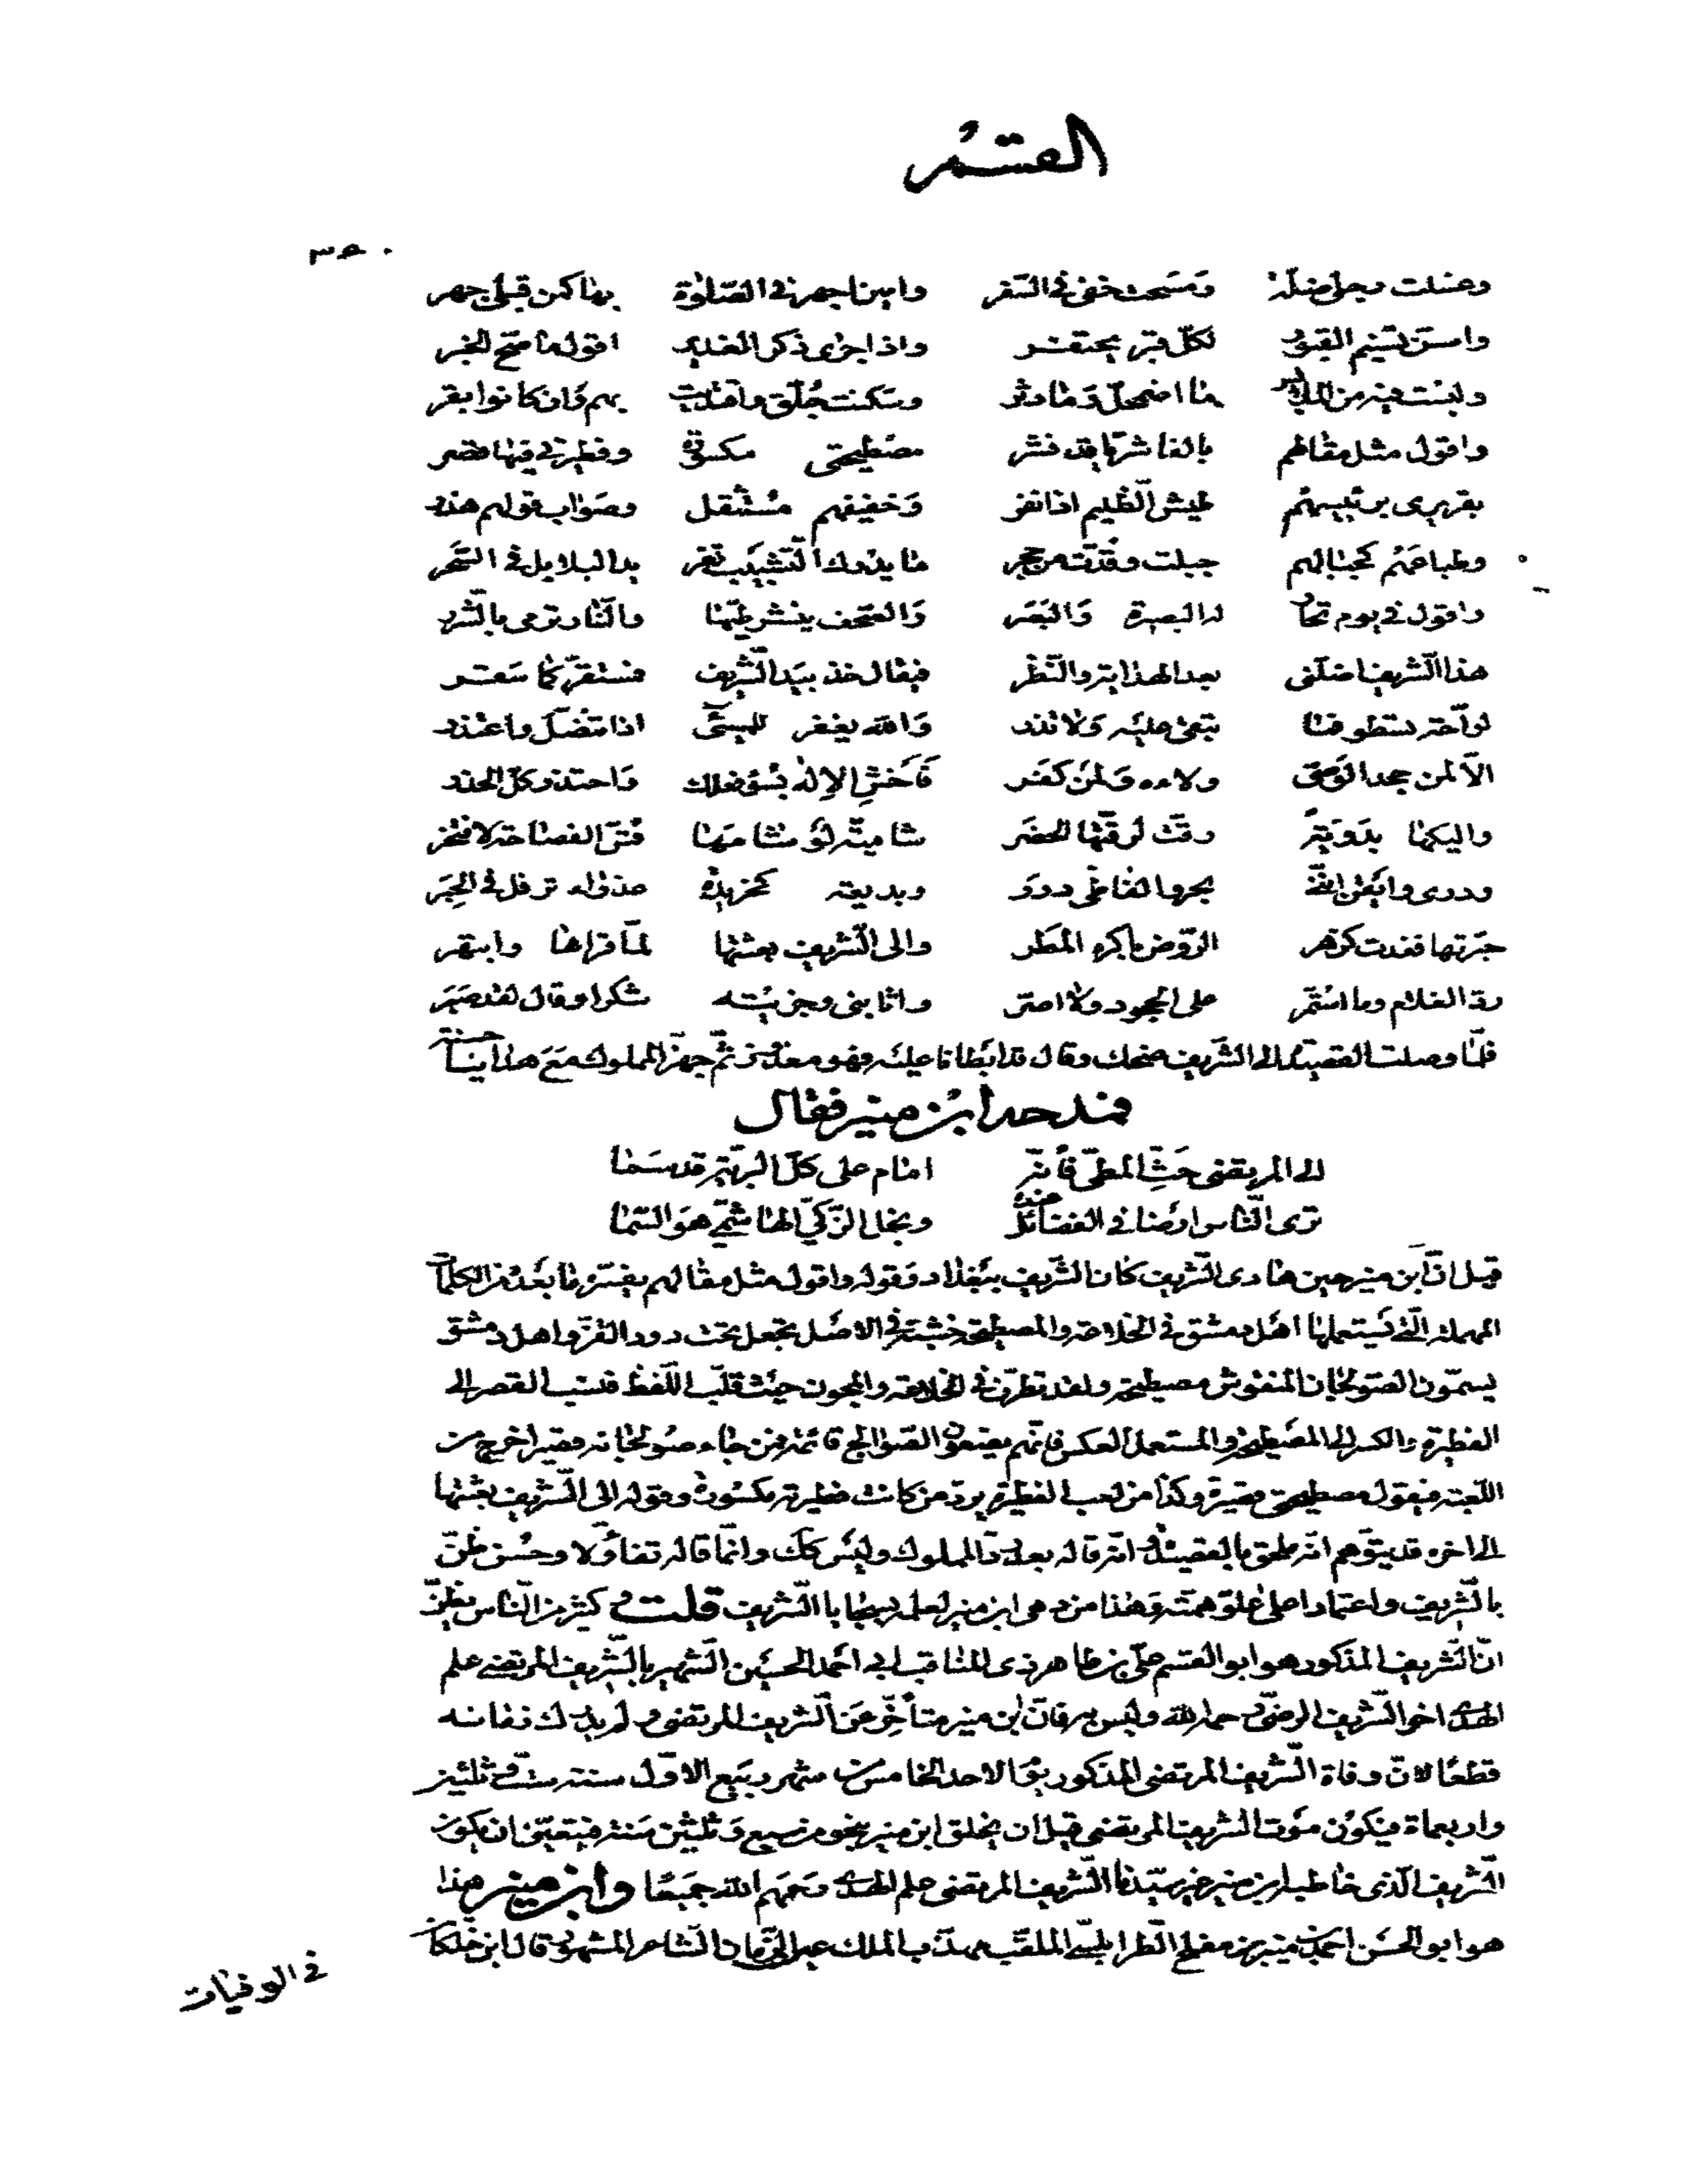 القسم
٣٥٠
وغسلت رجلي ضلة ومسحت خفي في السفر وامين اجهر في الصلوة بها كمن قبلي جهر
واسن تسنيم القبور لكل قبر يحتفر واذا جرى ذكر الغدير اقول ما صح الخبر
ولبست فيه من الملابس ما اضمحل وما دثر وسكنت جلق واقتديت بهم وان كانوا بقر
واقول مثل مقالهم بالفاشريا قد فشر مصطيحتي مكسورة وفطيرتي فيها قصر
بقر يرى برئيسهم طيش الظليم اذا نفر وخفيفهم مستثقل وصواب قولهم هذر
وطباعهم كجبالهم جبلت وقدت من حجر ما يدرك التشبيب تغريد البلابل في السحر
واقول في يوم تحار له البصيرة والبصر والصحف ينشر طيها والنار ترمي بالشرر
هذا الشريف اضلني بعد الهداية والنظر فيقال خذ بيد الشريف فمستقركما سقر
لواحة تسطو فما تبقي عليه ولا تذر والله يغفر للمسيئ اذا تنصل واعتذر
الا لمن جحد الوصي ولاءه ولمن كفر فاخش الاله بسوء فعلك واحتذر كل الحذر
واليكها بدوية رقت لرقتها الحضر شامية لو شامها قس الفصاحة لافتخر
ودرى وايقن انني بحر والفاظي درر وبديعة كخريدة عذراء ترفل في الحبر
حبرتها فغدت كزهر الروض باكره المطر والى الشريف بعثتها لما قراها وابتهر
رد الغلام وما استمر على الجحود ولا اصر واثابني وجزيته شكرا وقال لقد صبر
فلما وصلت القصيدة الى الشريف ضحك وقال قد ابطانا عليه فهو معذور ثم جهز المملوك مع هدايا حسنة
فمدحه ابن منير فقال
الى المرتضى حث المطي فانه امام على كل البرية قد سما
ترى الناس ارضا في الفضائل عنده ونجل الزكي الهاشمي هو السما
قيل ان ابن منير حين هادى الشريف كان الشريف ببغداد وقوله واقول مثل مقالهم يفسره ما بعده من الكلمات
المهملة التي يستعملها اهل دمشق في الخلاعة والمصطيحة خشبة في الاصل تجعل تحت دود القز واهل دمشق
يسمون الصولجان المنقوش مصطيحة ولقد تظرف في الخلاعة والمجون حيث قلب اللفظ فنسب القصر الى
الفطيرة والكسر الى المصطيحة والمستعمل العكس فانهم يضعون الصوالج قائمة فمن جاء صولجانه قصيرا خرج من
اللعبة فيقول مصطيحتي قصيرة وكذا من لعب الفطيرة يرد من كانت فطيرته مكسورة وقوله الى الشريف بعثتها
الى اخره قد يتوهم انه ملحق بالقصيدة وانه قاله بعد رد المملوك وليس كك وانما قاله تفاؤلا وحسن ظن
بالشريف واعتمادا على علو همته وهذا من دهى ابن منير لعله بسجايا الشريف قلت وكثير من الناس يظن
ان الشريف المذكور هو ابو القسم علي بن طاهر ذي المناقب ابي احمد الحسين الشهير بالشريف المرتضى علم
الهدى اخو الشريف الرضي رحمه الله وليس به فان ابن منير متأخر عن الشريف المرتضى ولم يدرك زمانه
قطعا لان وفاة الشريف المرتضى المذكور يوم الاحد الخامس من شهر ربيع الاول سنة ست وثلثين
واربعماة فيكون موت الشريف المرتضى قبل ان يخلق ابن منير بنحو من سبع وثلثين سنة فيتعين ان يكون
الشريف الذي خاطبه ابن منير غير سيدنا الشريف المرتضى علم الهدى رحمهم الله جميعا وابن منير هذا
هو ابو الحسن احمد بن منير بن مفلح الطرابلسي الملقب مهذب الملك عين الزمان الشاعر المشهور قال ابن خلكان
في الوفيات